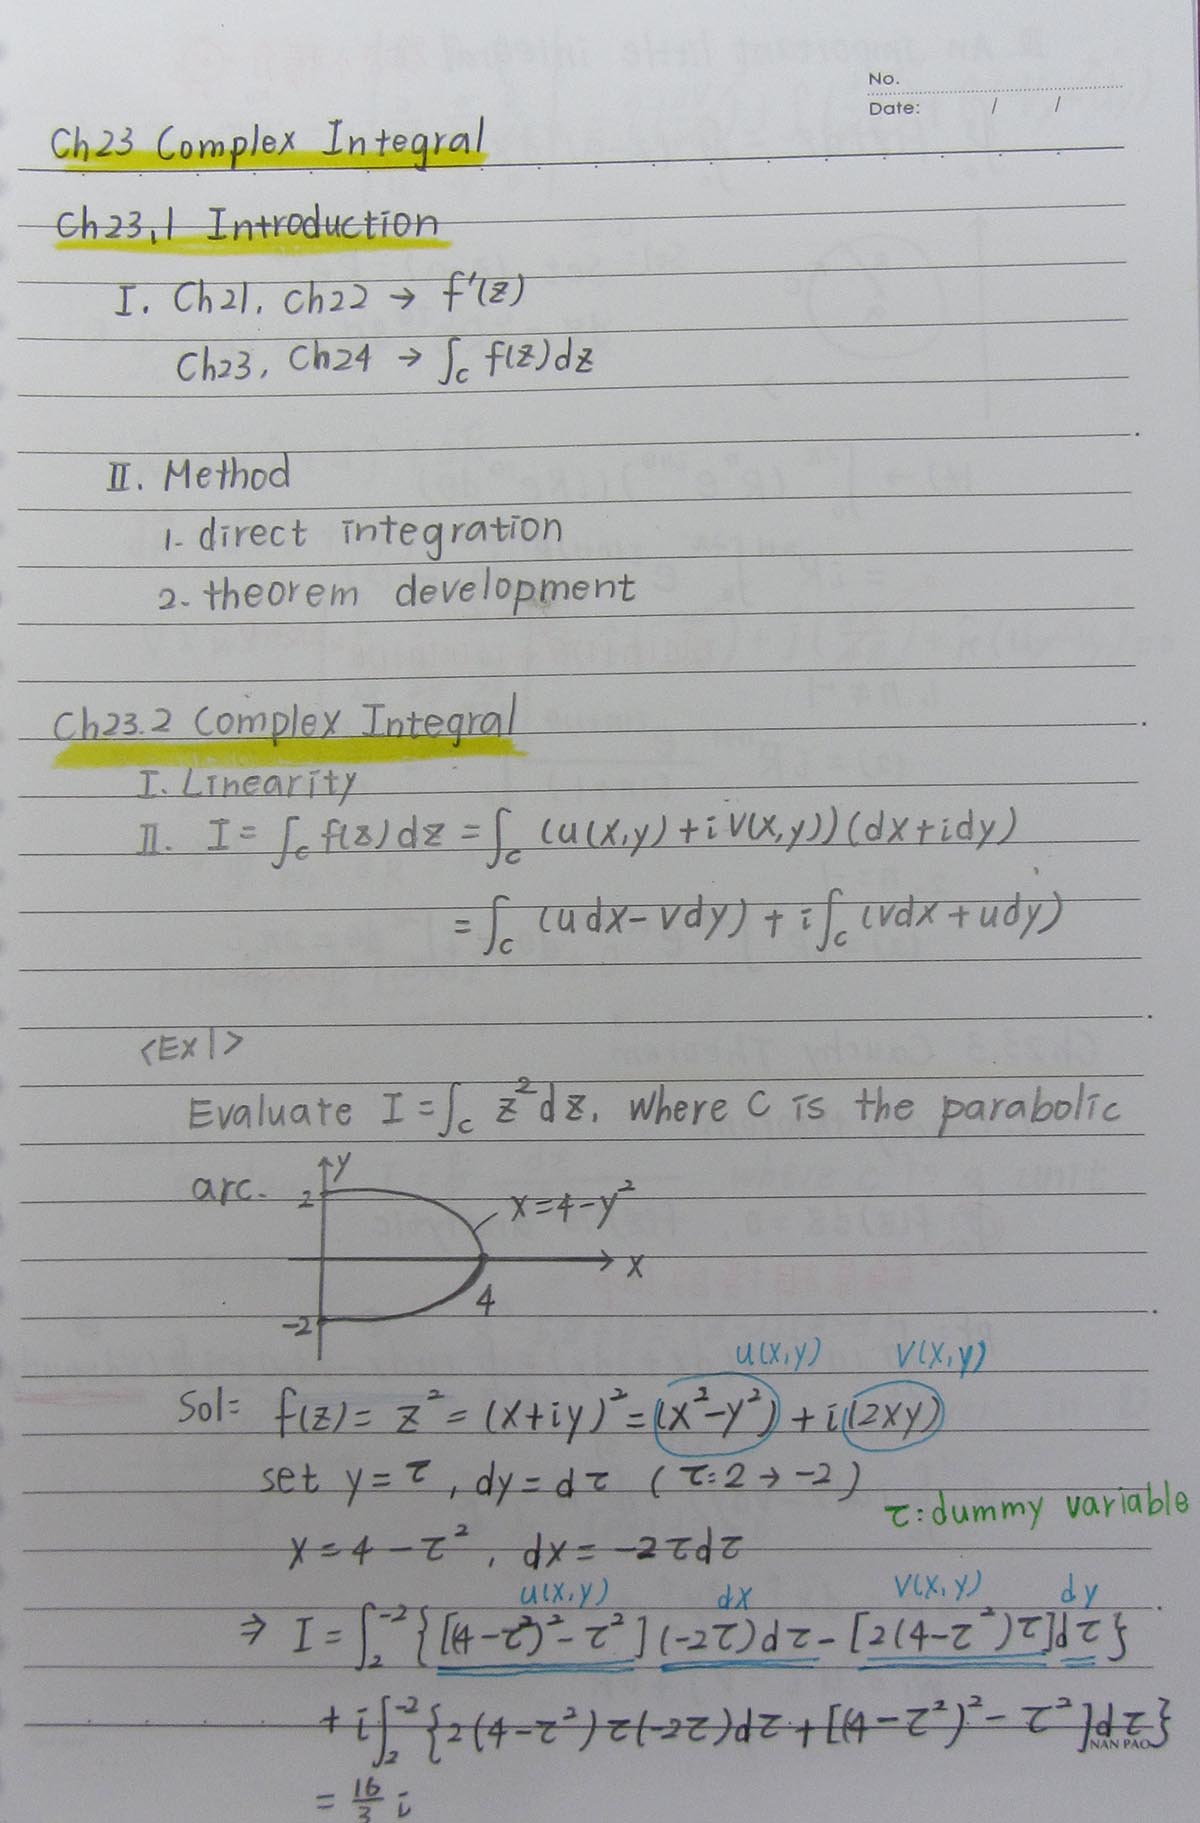 No.
Date: / /
Ch23 Complex Integral
Ch23.1 Introduction
I. Ch21, Ch22 → f'(z)
Ch23, Ch24 → ∫c f(z)dz
II. Method
1. direct integration
2. theorem development
Ch23.2 Complex Integral
I. Linearity
II. I = ∫c f(z)dz = ∫c (u(x,y) + i v(x,y))(dx+idy)
= ∫c (udx - vdy) + i∫c (vdx + udy)
<Ex1>
Evaluate I = ∫c z² dz, where C is the parabolic
arc.
y
2
x=4-y²
x
4
-2
u(x,y) v(x,y)
Sol: f(z) = z² = (x+iy)² = (x²-y²) + i(2xy)
set y = τ, dy = dτ (τ: 2 → -2)
τ: dummy variable
x = 4 - τ², dx = -2τdτ
u(x,y) dx v(x,y) dy
⇒ I = ∫₂⁻² {[(4-τ²)² - τ²](-2τ)dτ - [2(4-τ²)τ]dτ}
+ i∫₂⁻² {2(4-τ²)τ(-2τ)dτ + [(4-τ²)² - τ²]dτ}
NAN PAO
= 16/3 i